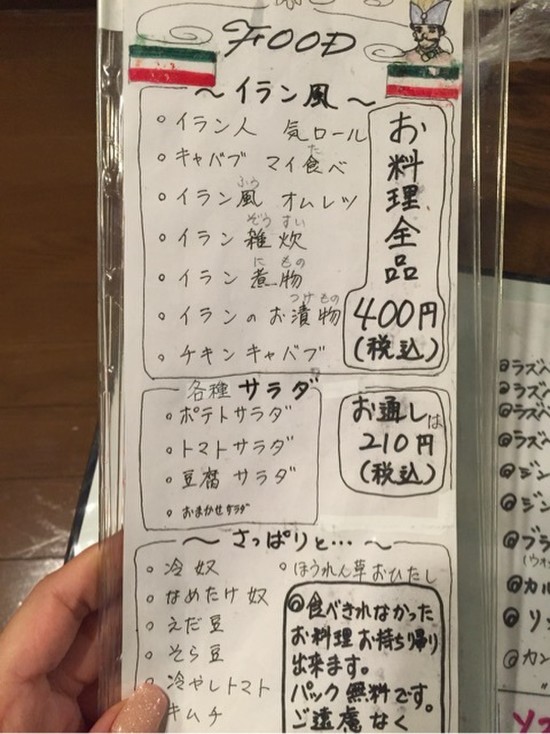 FOOD
～イラン風～
。イラン人 気ロール
。キャバブ マイ食べ
。イラン風 オムレツ
。イラン雑炊
。イラン煮物
。イランのお漬物
。チキンキャバブ
お料理全品
400円
(税込)
各種サラダ
。ポテトサラダ
。トマトサラダ
。豆腐サラダ
。おまかせサラダ
お通しは
210円
(税込)
～さっぱりと…～
。冷奴
。ほうれん草おひたし
。なめたけ奴
。えだ豆
。そら豆
。冷やしトマト
キムチ
◎食べきれなかった
お料理お持ち帰り
出来ます。
パック無料です。
ご遠慮なく
◎ラズベ
◎ラズベ
◎ラズベ
◎ラズベ
◎ジン
◎ジン
◎ブラ
◎カル
◎リン
◎カン